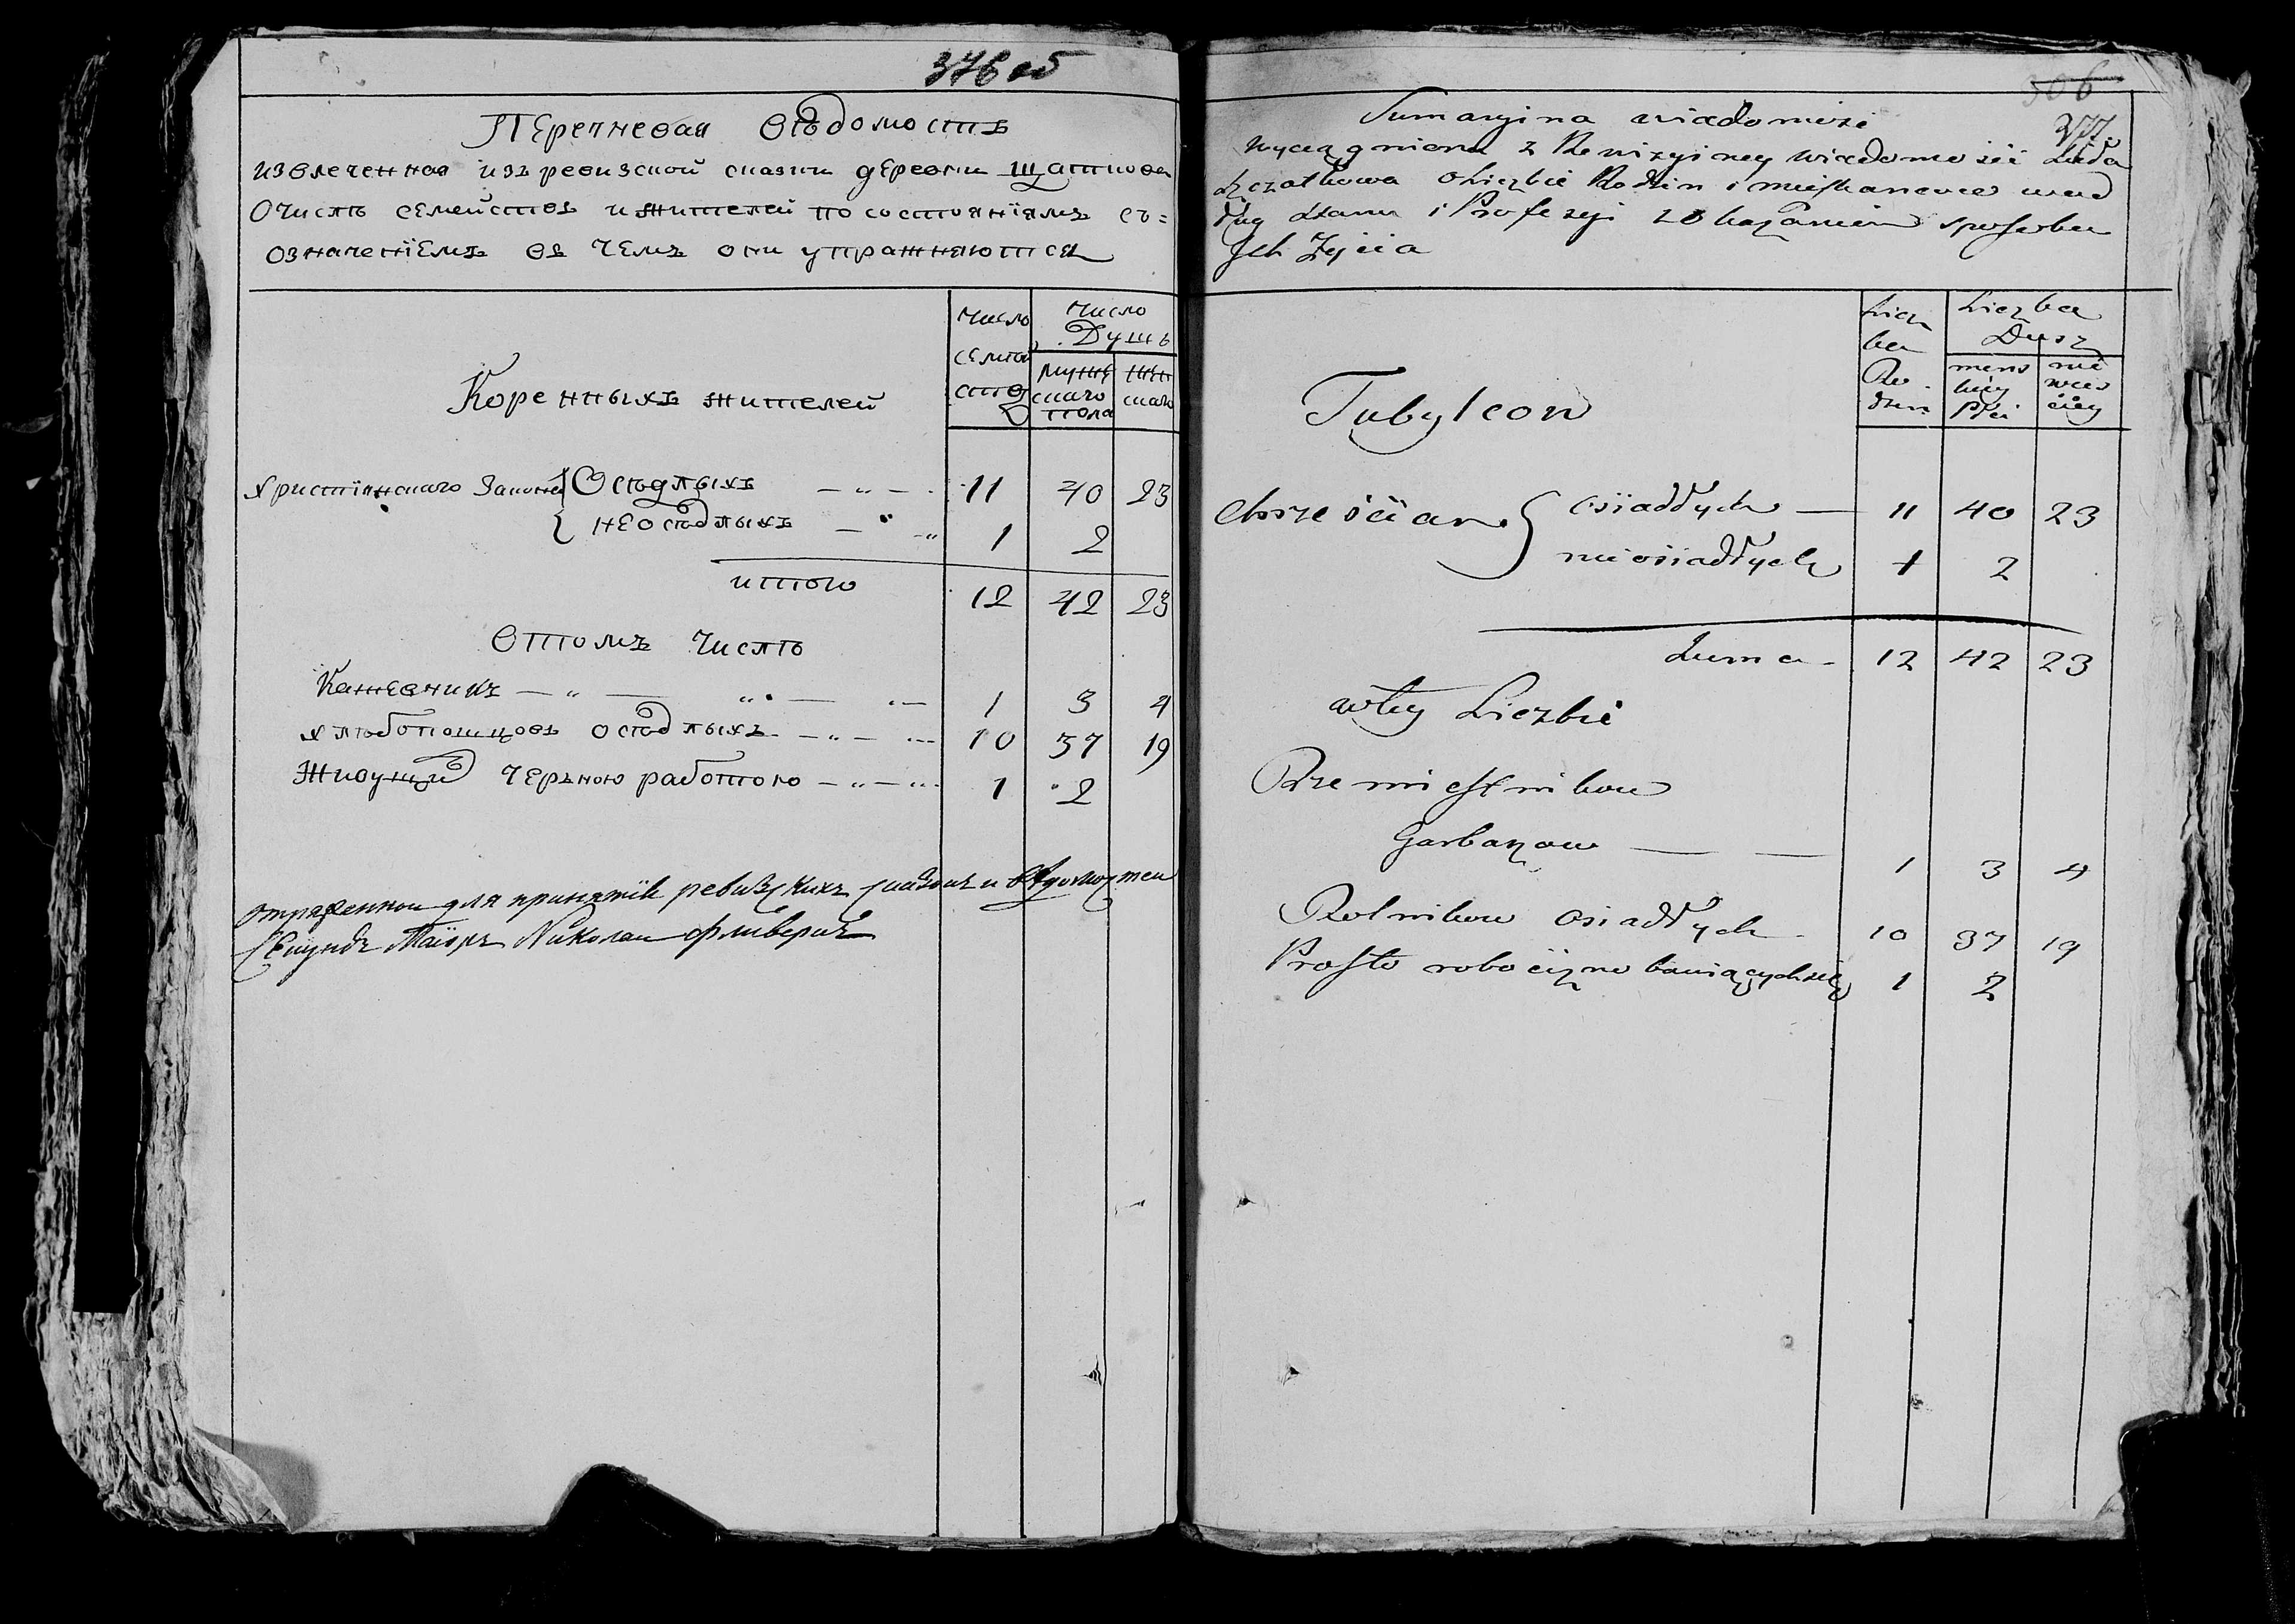 376 об
Перечневая вѣдомость
извлеченная изъ ревизской сказки деревни Щаткова
О числѣ семействъ и жителей по состояніямъ съ=
означеніемъ въ чемъ они упражняются
Коренныхъ жителей
число семействъ
число Душъ
мужескаго пола
женскаго
Христіянскаго Закона { Осѣдлыхъ 11 40 23
{ неосѣдлыхъ 1 2
итого 12 42 23
Втомъ числѣ
Кожевникъ 1 3 4
хлѣбопашцовъ осѣдлыхъ 10 37 19
Живущій черъною работою 1 2
отпряженнои для принятія ревизскихъ сказокъ и вѣдомостеи
Секундъ Маіоръ Николаи
306
377
Sumaryina wiadomość
wyciągniona z Rewizyiney wiadomości
o Liczbie Rodzin i mieszkancow wed
ług stanu i Profesyi z Okazaniem sposobu
Ich Życia
Tubylcow
Licz
ba
Ro
dzin
Liczba
Dusz
mens
kiey
Płci
nie
wies
ciey
chrześcian { osiadłych — 11 40 23
nieosiadłych 1 2
Suma 12 42 23
wtey Liczbie
Rzemiesnikow
Garbarzow — — 1 3 4
Rolnikow osiadłych 10 37 19
Prosto robocizno bawiących się 1 2